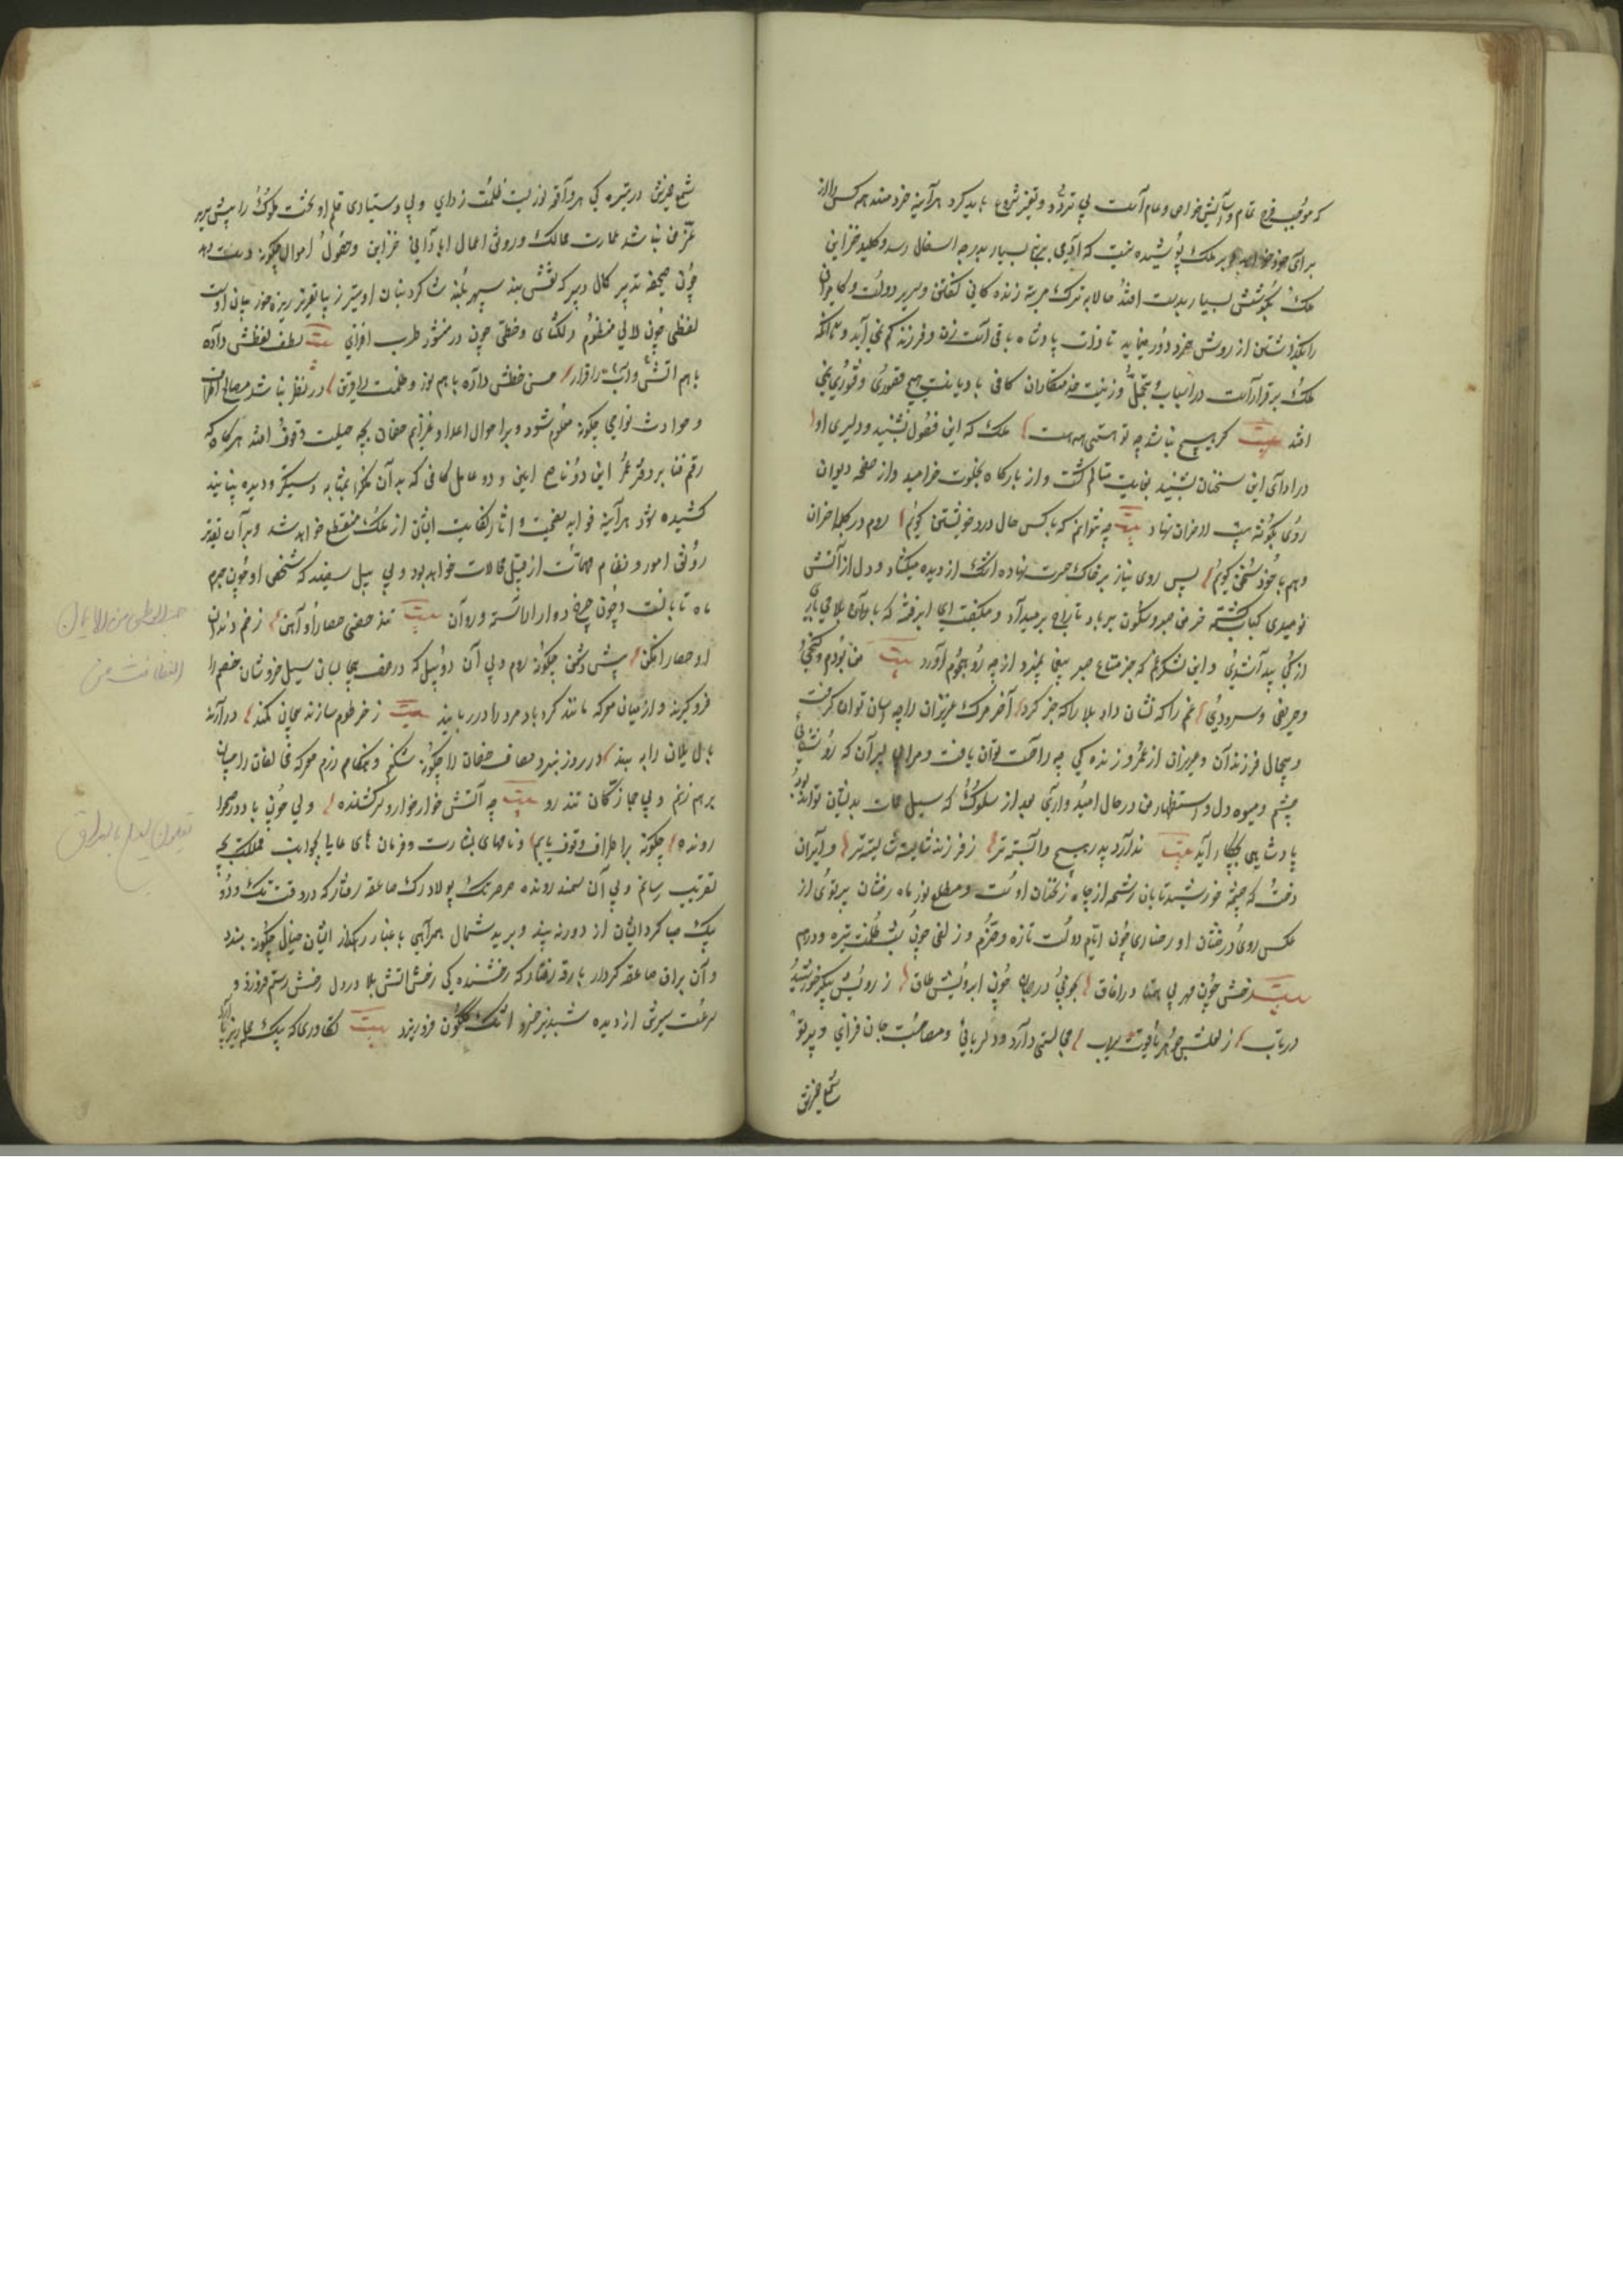 که موجب فرح تمام و آسایش خواص و عوام است بی تردد و تغیر شروع باید کرد هرآینه خردمند همه کس را از
برای خود خواهد و بر ملک پوشیده نیست که آدمی برنج بسیار بدرجه استقلال رسد و کلید خزاین
ملک بکوشش بسیار بدست افتد حالا به ترک هر سه زنده کانی گفتن و سریر دولت و کامرانی
را بگذاشتن از روش خرد دور مینماید تا ذات پادشاه باقی است زن و فرزند کم نمی آید و تا آنکه
ملک برقرار است در اسباب تجمل و زینت خدمتکاران کافی با دیانت هیچ قصوری و فتوری نمی
افتد بیت گر هیچ نباشد چه تو هستی همه هست ملک که این فصول بشنید و دلیری او
در ادای این سخنان بشنید بغایت متالم گشت و از بارگاه بخلوت خرامید و از صفحه دیوان
روی بگوشه بیت الاحزان نهاد بیت چه نتوانم که با کس حال درد خویشتن گویم روم در کلبه احزان
و هم با خود سخن گویم پس روی نیاز بر خاک حسرت نهاده اشک از دیده میگشاد و دل از آتش
نومیدی کباب گشته خرمن صبر و سکون بر باد
از کجا پیدا شد و این لشکر غم که جز متاع صبر بیغما نمیبرد از چه رو هجوم آورد بیت من بودم و کنجی
و حریفی و سرودی غم را که نشان داد بلا را که خبر کرد آخر مرگ عزیزان را چه آسان توان گرفت
و بیجمال فرزندان و عزیزان از عمر و زنده کی چه راحت توان یافت و مرا این پسران که روشنی
چشم و میوه دل و استظهار من در حال امید واری بعد از سلوک که سیل ممات بدیشان تواند بود
پادشاهی بچکار آید بیت ندارد پدر هیچ وابسته تر ز فرزند شایسته شایسته تر و ایران
دخت که چشمه خورشید تابان رشحه از چاه زنخدان اوست و مطلع نور ماه رخشان پرتوی از
عکس روی درخشان او رخساری چون ایام دولت تازه و خرم و زلفی چون شب ظلمت تیره و درهم
بیت رخش چون مهر بی همتا در آفاق بخوبی در جهان چون ابرویش طاق ز رویش پیکر خورشید
در تاب ز لعلش جوهر یاقوت سیراب مجالستی دارد دلربائی و مصاحبت جان فزای و پرتو
شمع عزیزش
شمع عزیزش در تیره کی هر واقعه نوریست ظلمت زدای و بی دستیاری قلم او تخت ملوک را پیش سریر
عز من نباشد عمارت ممالک و رونق اعمال آبادانی خزاین و حصول اموال چگونه دست دهد
چون صحیفه تدبیر کمال دبیر که نقش بند سپهر شاگرد بنان اوست
لفظی چون لالی منظوم دلگشای و خطی چون در منثور طرب افزای بیت لطف لفظش داده
باهم آتش و آب را قرار حسن خطش داده باهم نور و ظلمت را قرین در نظر نباشد مصالح اطراف
و حوادث نواحی چگونه معلوم شود و بر احوال اعدا و عزایم خصمان بچه حیلت وقوف افتد هرگاه که
رقم فنا بر دفتر عمر این دو ناصح امین و دو عامل کافی که به آن ملک را بمثابه دستگیر و دیده بینایند
کشیده شود هرآینه فواید نصیحت و آثار کفایت ایشان از ملک منقطع خواهد شد و برآن تقدیر
رونق امور و نظام مهمات از قبیل محالات خواهد بود و بی پیل سفید که شخص او چون جرم
ماه تابانست و چون چرخ دوار آراسته و روان بیت تند حصنی حصار او آهن زخم دندان
او حصار افکن پیش دشمن چگونه روم و بی آن دو پیل که در صف هیجا بسان سیل خروشان خصم را
فرو گیرند و از میان معرکه مانند گردباد مرد را در ربایند بیت ز خرطوم سازند پیچان کمند درآرند
یال یلان را به بند در روز نبرد مصاف خصمان را چگونه شکنم و هنگام رزم معرکه مخالفان را چسان
برهم زنم و بی جمازگان تندرو بیت چه آتش خوار خوار و سرکشنده ولی چون باد در صحرا
رونده چگونه بر اطراف وقوف یابم و نامهای بشارت و فرمان های عالی بجوانب مملکت بچه
تقریب رسانم و بی آن سمند رونده صرصر تک پولاد رگ صاعقه رفتار که در وقت تک و دو
پیک صبا گرد ایشان از دور نه بیند و برید شمال بهمرآهی با غبار رهگذار ایشان خیال چگونه بندد
و آن براق صاعقه کردار بارقه رفتار که رخشنده کی رخش آتش بلا در دل رخش رستم فروزد و
سرعت سیرش از دیده شبدیز خسرو اشک گلگون فرو ریزد بیت